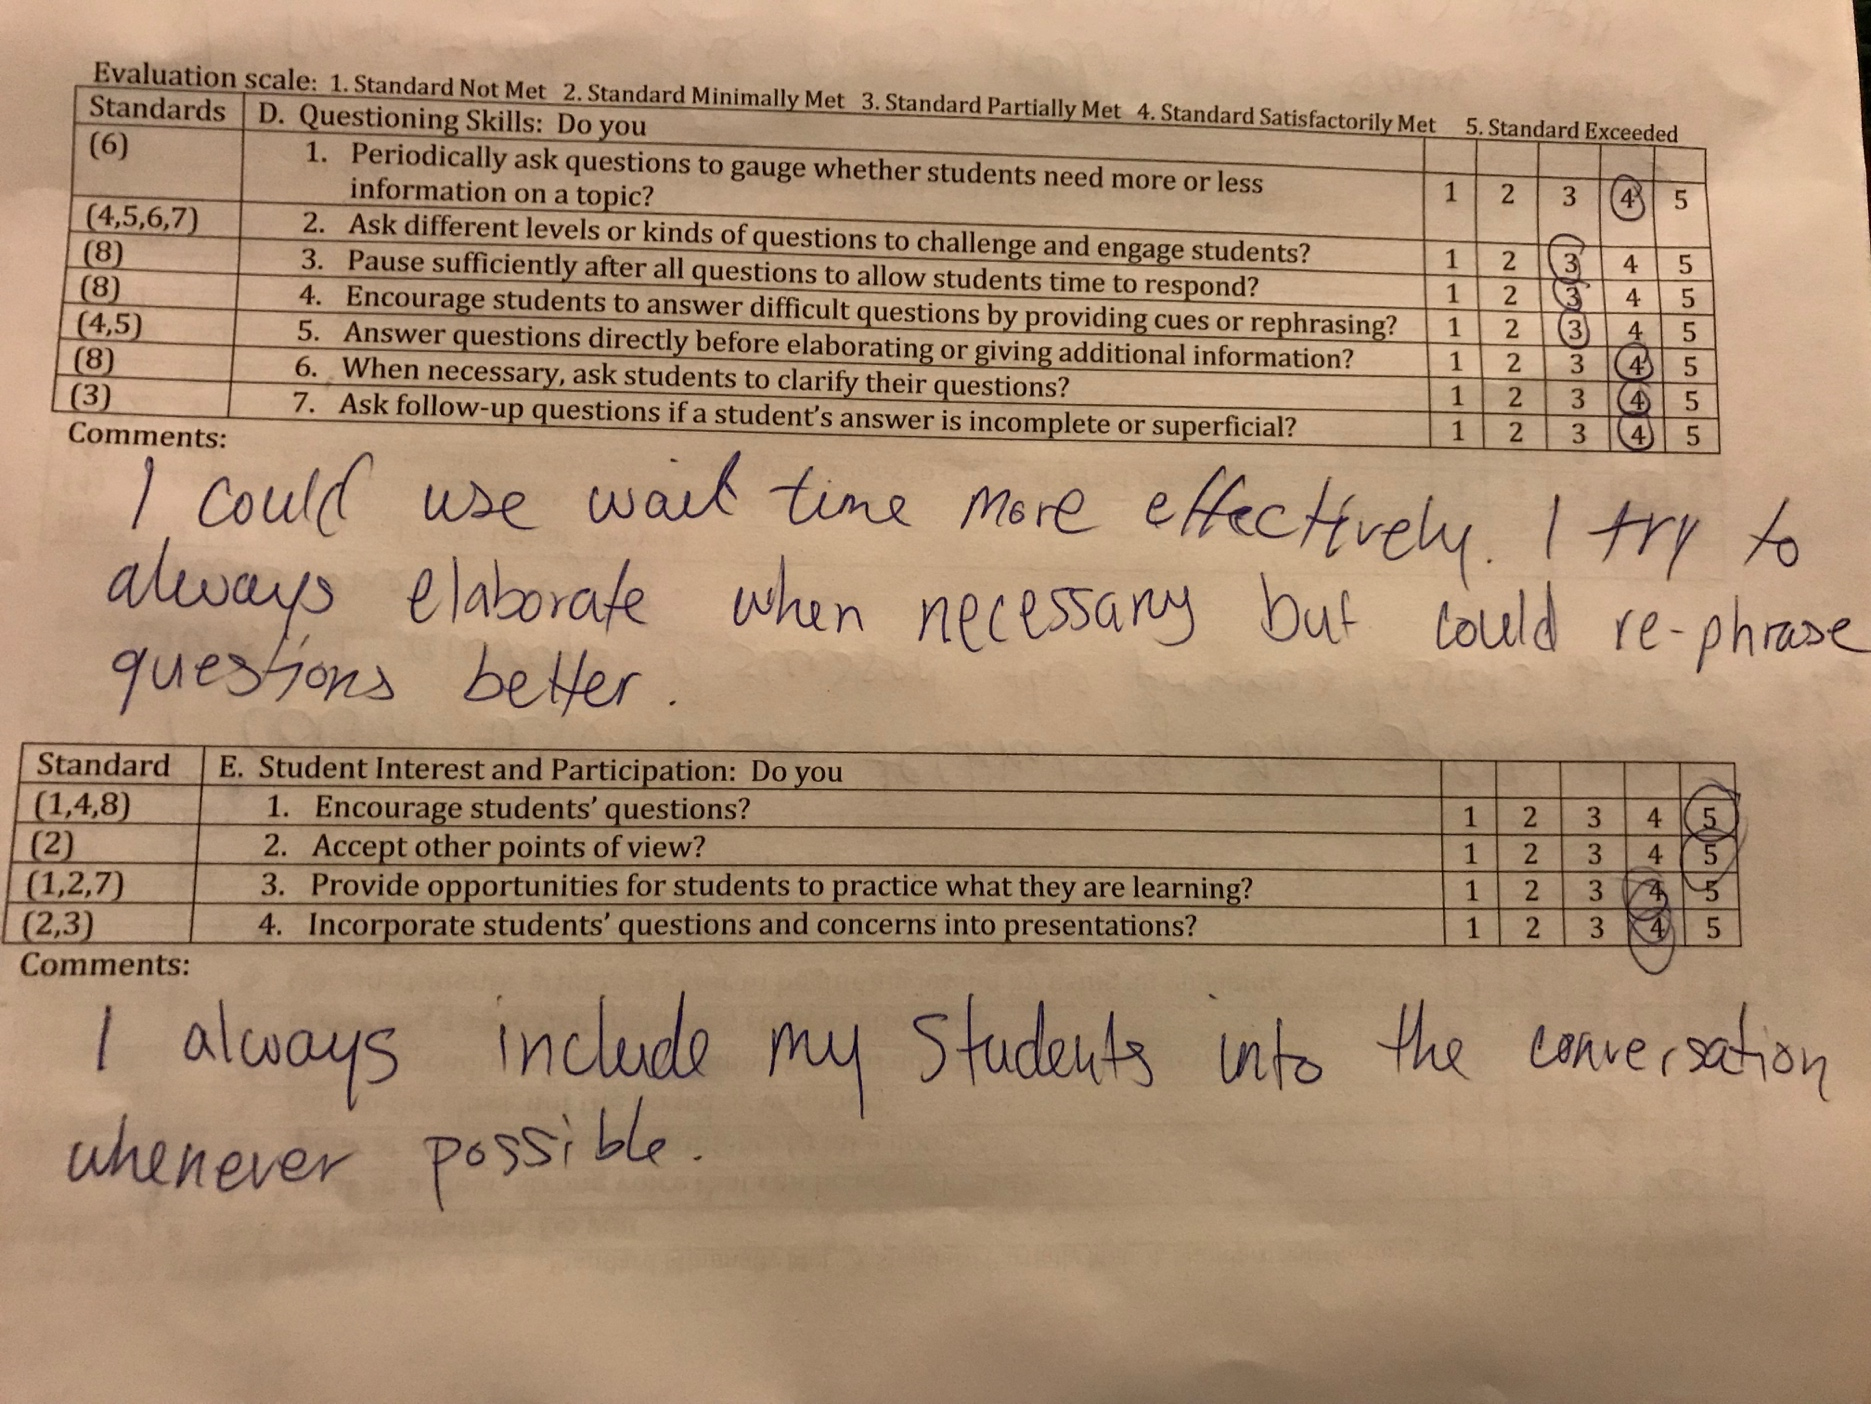 Evaluation scale: 1. Standard Not Met 2. Standard Minimally Met 3. Standard Partially Met 4. Standard Satisfactorily Met 5. Standard Exceeded
Standards D. Questioning Skills: Do you
(6) 1. Periodically ask questions to gauge whether students need more or less
information on a topic? 1 2 3 4 5
(4,5,6,7) 2. Ask different levels or kinds of questions to challenge and engage students? 1 2 3 4 5
(8) 3. Pause sufficiently after all questions to allow students time to respond? 1 2 3 4 5
(8) 4. Encourage students to answer difficult questions by providing cues or rephrasing? 1 2 3 4 5
(4,5) 5. Answer questions directly before elaborating or giving additional information? 1 2 3 4 5
(8) 6. When necessary, ask students to clarify their questions? 1 2 3 4 5
(3) 7. Ask follow-up questions if a student's answer is incomplete or superficial? 1 2 3 4 5
Comments:
I could use wait time more effectively. I try to
always elaborate when necessary but could re-phrase
questions better.
Standard E. Student Interest and Participation: Do you
(1,4,8) 1. Encourage students' questions? 1 2 3 4 5
(2) 2. Accept other points of view? 1 2 3 4 5
(1,2,7) 3. Provide opportunities for students to practice what they are learning? 1 2 3 4 5
(2,3) 4. Incorporate students' questions and concerns into presentations? 1 2 3 4 5
Comments:
I always include my students into the conversation
whenever possible.